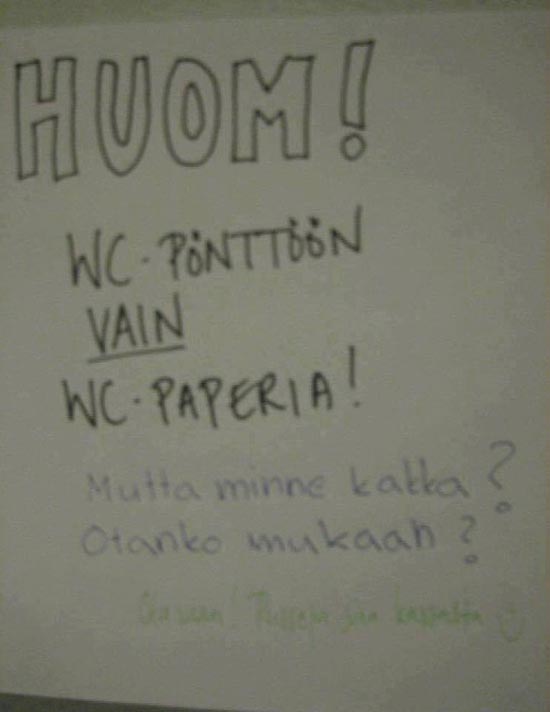 HUOM!
WC-PÖNTTÖÖN
VAIN
WC-PAPERIA!
Mutta minne kakka?
Otanko mukaan?
Ota vaan! Pusseja saa kassalta